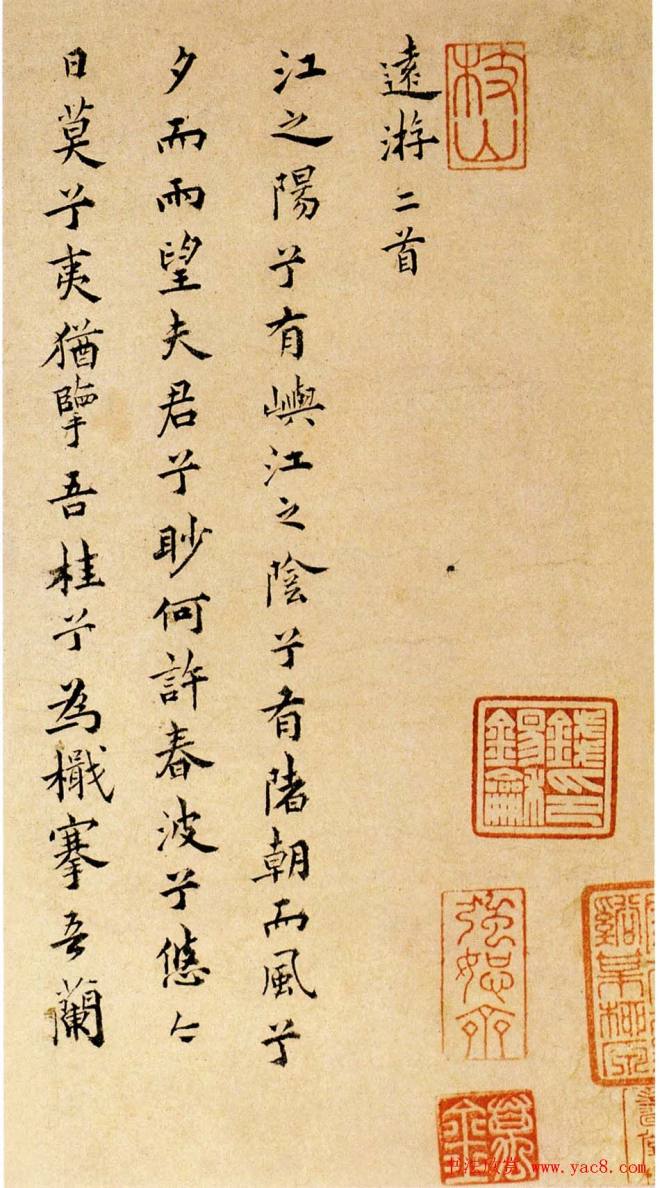 枝山
遠游二首
江之陽兮有嶼江之陰兮有陼朝而風兮
夕而雨望夫君兮眇何許春波兮悠〻
日莫兮夷猶擥吾桂兮為檝搴吾蘭
錢錫印
強恕齋
書法欣赏 www.yac8.com